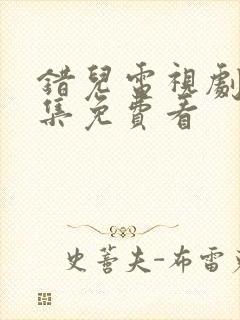 錯兒電視劇
集免費看
史蒈夫-布雷